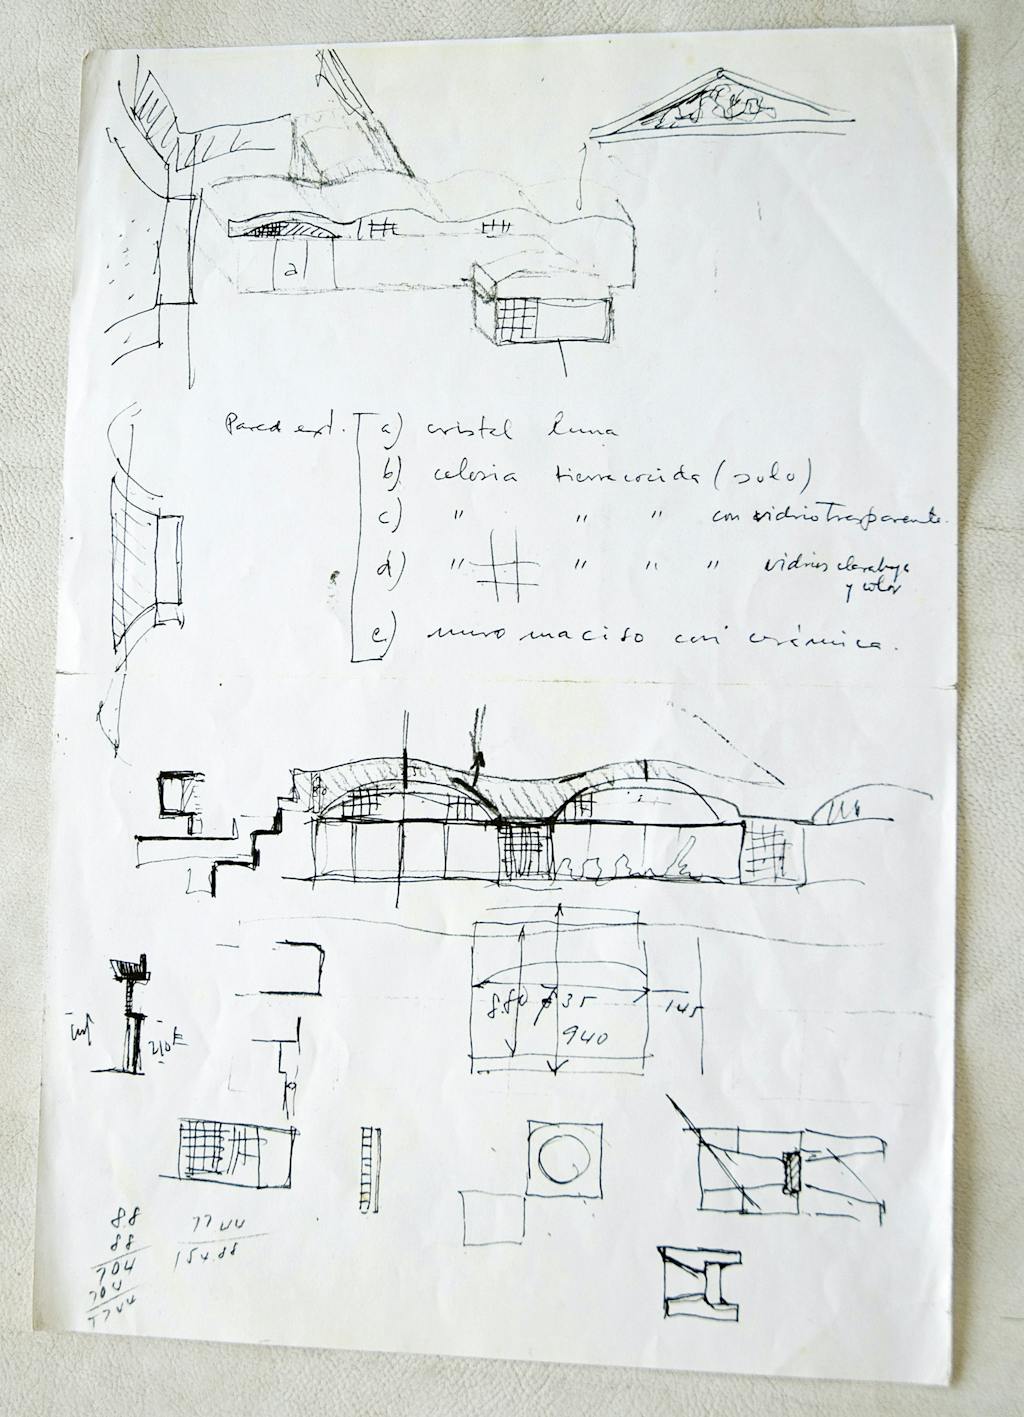 a)
Pared ext. a) cristal luna
b) celosia tierracocida (solo)
c) " " " con vidrio trasparente.
d) " " " " vidrios claraboya
y color
e) muro maciso con cerámica.
8.80 35 145
940
210
88
88
704
704
7744
7744
154.88